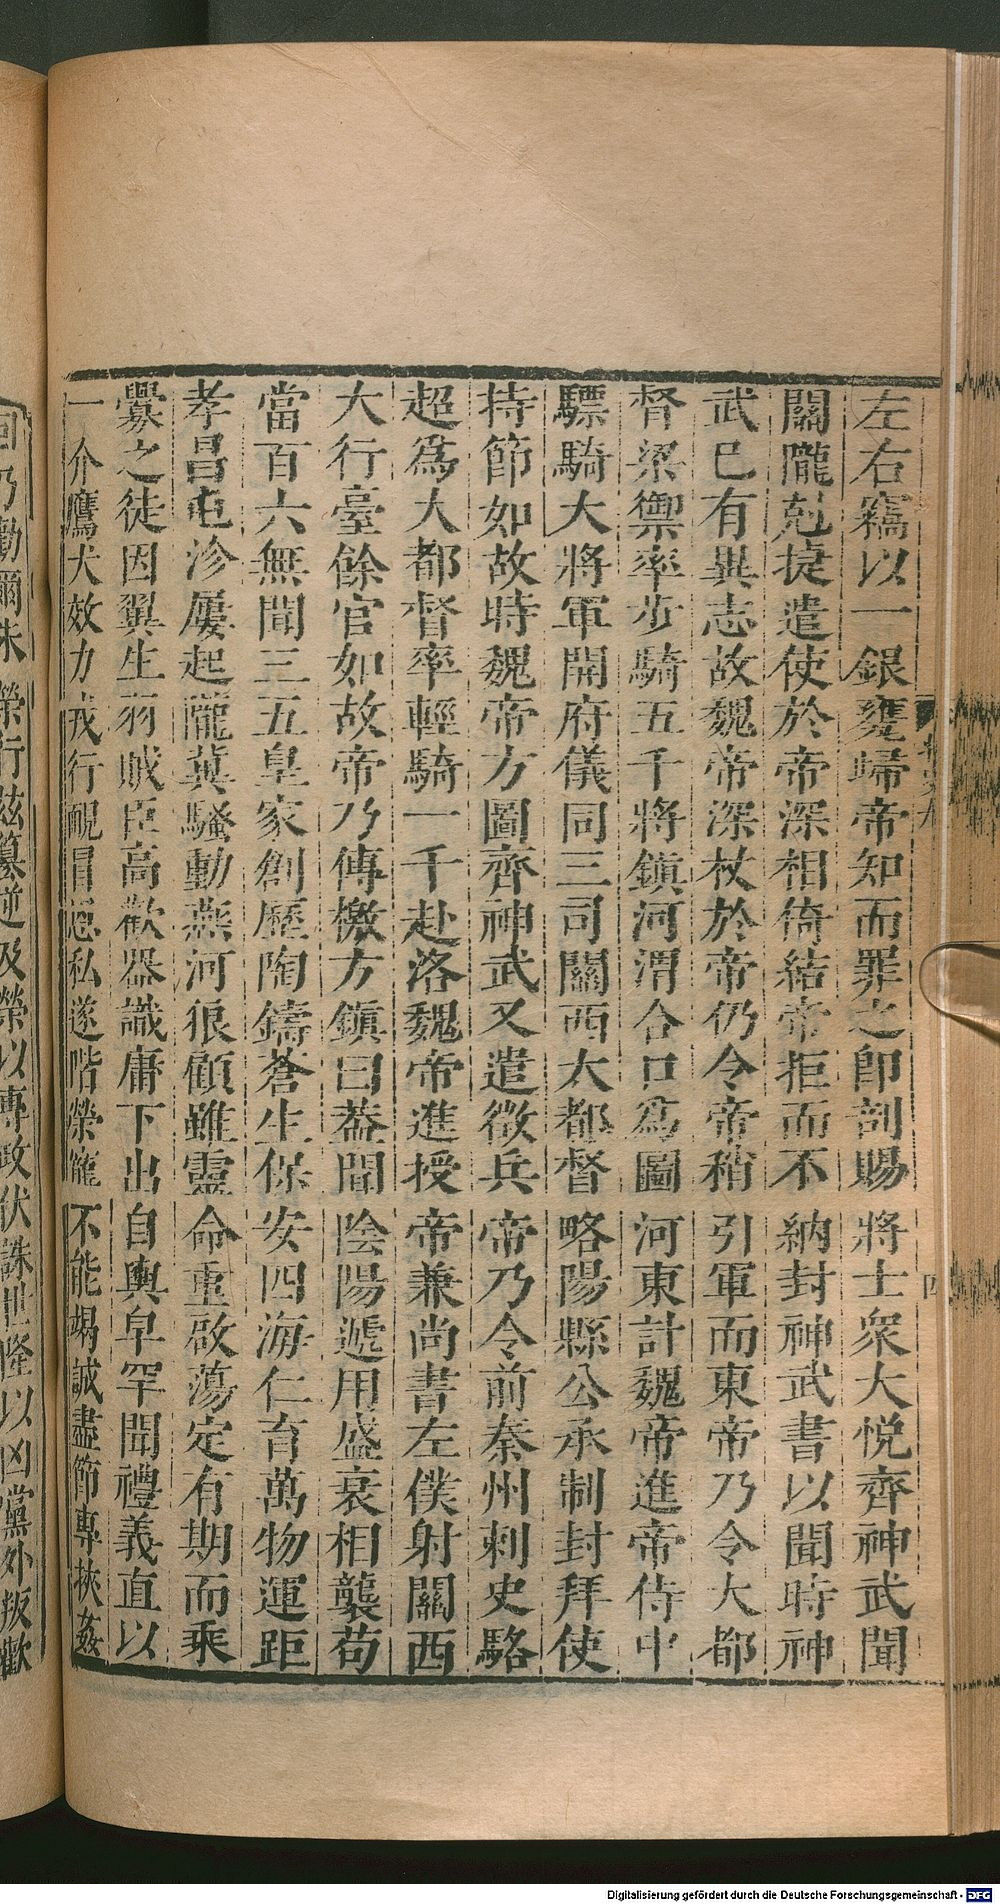 左右竊以一銀甕歸帝知而罪之即剖賜將士衆大悅齊神武聞
關隴尅捷遣使於帝深相倚結帝拒而不納封神武書以聞時神
武已有異志故魏帝深杖於帝仍令帝稍引軍而東帝乃令大都
督梁禦率步騎五千將鎮河渭合口爲圖河東計魏帝進帝侍中
驃騎大將軍開府儀同三司關西大都督略陽縣公承制封拜使
持節如故時魏帝方圖齊神武又遣徵兵帝乃令前秦州刺史駱
超爲大都督率輕騎一千赴洛魏帝進授帝兼尚書左僕射關西
大行臺餘官如故帝乃傳檄方鎮曰葢聞陰陽遞用盛衰相襲苟
當百六無聞三五皇家創歷陶鑄蒼生保安四海仁育萬物運距
孝昌屯沴屢起隴冀騷動燕河狼顧雖靈命重啟蕩定有期而乘
釁之徒因翼生羽賊臣高歡器識庸下出自輿皁罕聞禮義直以
一介鷹犬效力戎行靦冒恩私遂階榮寵不能竭誠盡節專挾姦
回乃勸爾朱榮行兹簒逆及榮以專政伏誅世隆以凶黨外叛歡
四
Digitalisierung gefördert durch die Deutsche Forschungsgemeinschaft - DFG